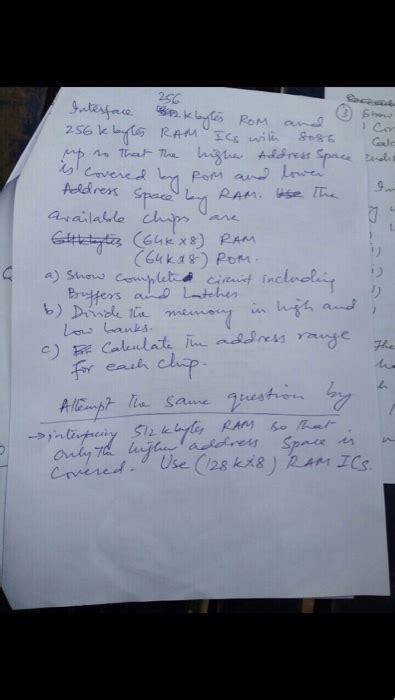 256
Interface k bytes ROM and
256 k bytes RAM ICs with 8086
μp so that the higher Address Space
is covered by ROM and lower
Address Space by RAM. Use The
available chips are
64k bytes (64K X 8) RAM
(64K a 8) ROM.
a) Show completed circuit including
Buffers and Latches
b) Divide the memory in high and
Low banks.
c) Calculate The address range
for each chip.
Attempt The same question by
→ interfacing 512 k bytes RAM so that
only the higher address Space is
covered. Use (128K X 8) RAM ICs.
3 Show